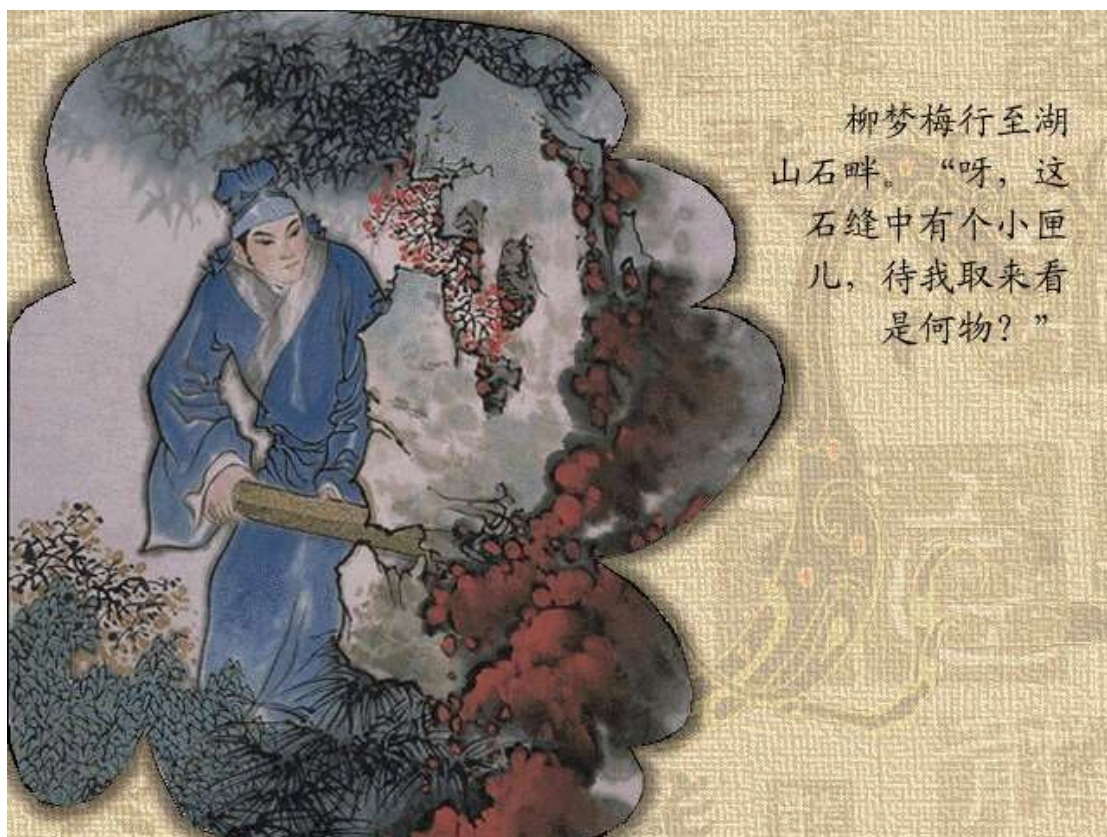 柳梦梅行至湖
山石畔。“呀，这
石缝中有个小匣
儿，待我取来看
是何物？”